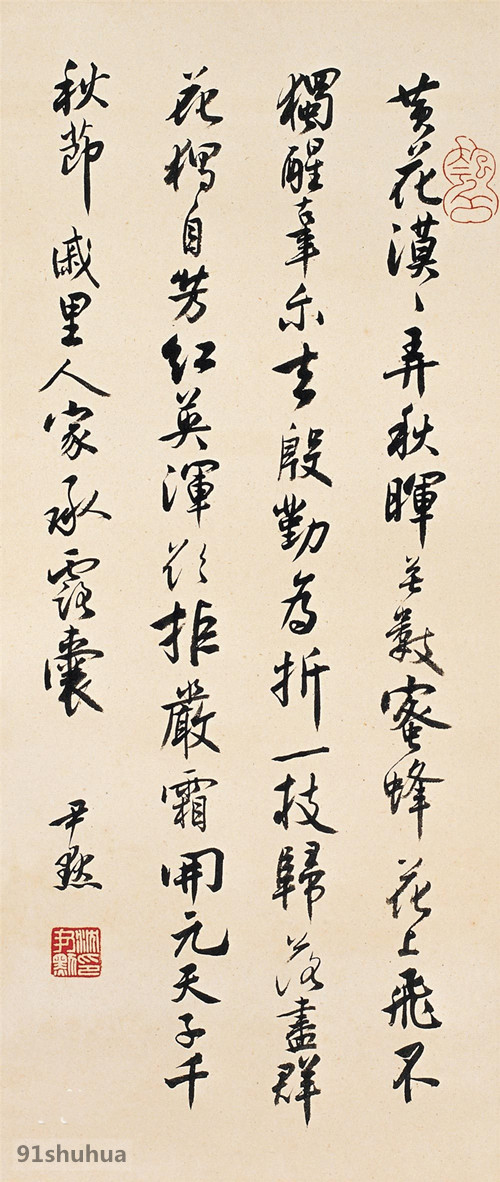 黄花漠〻弄秋暉无數蜜蜂花上飛不
獨醒辜尔去殷勤为折一枝歸落盡群
花獨自芳紅英渾欲拒嚴霜開元天子千
秋節戚里人家承露囊
尹默
沈尹默印
91shuhua